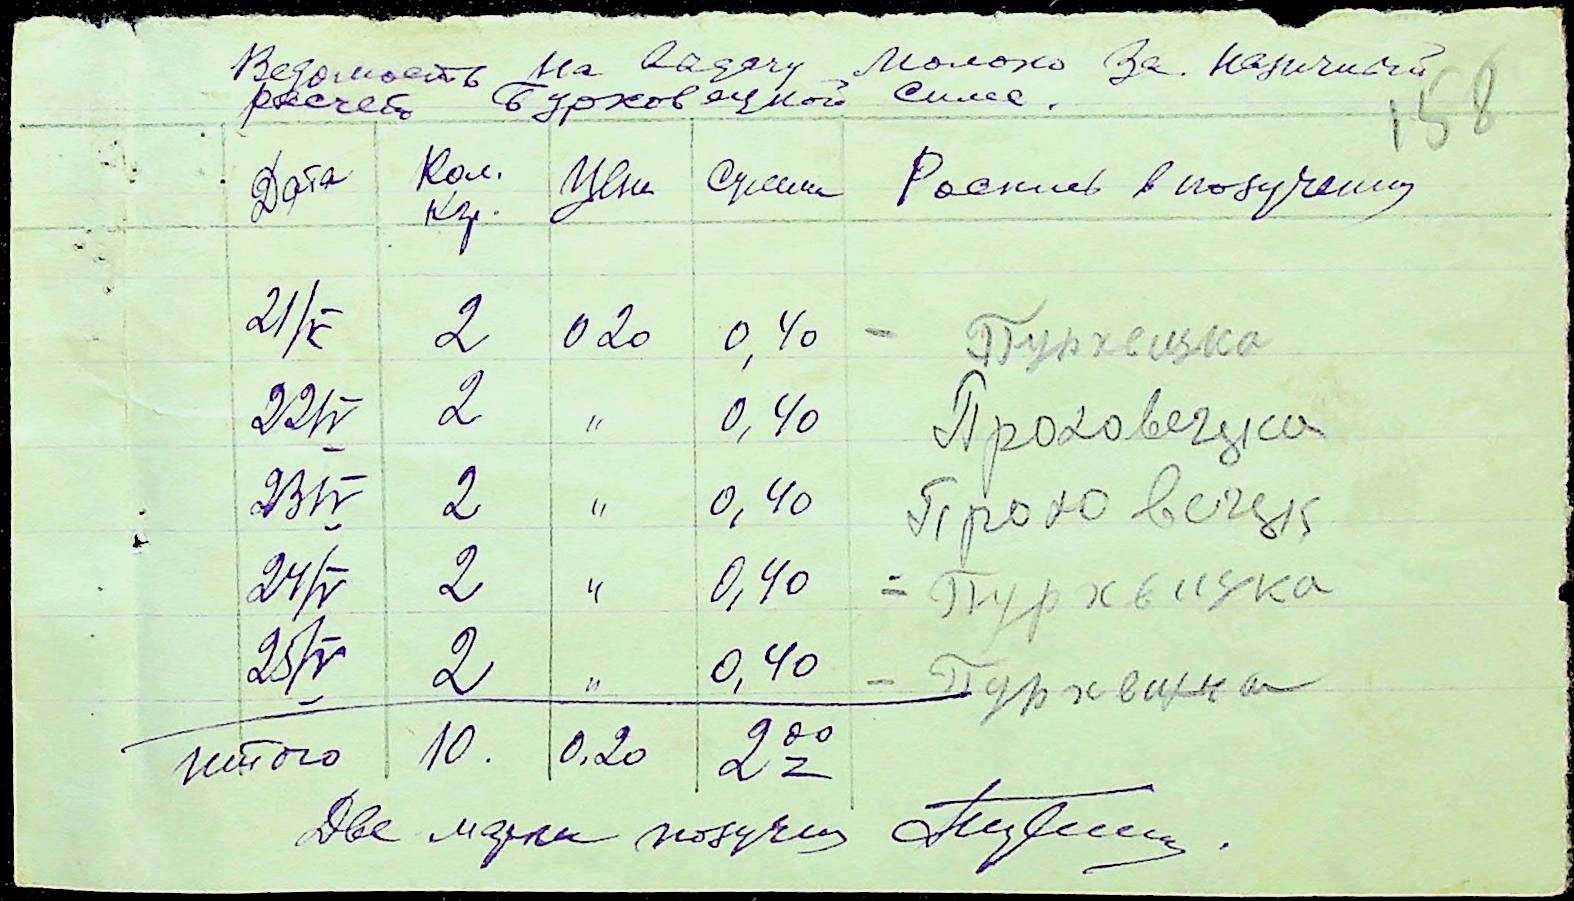 Ведомость на видачу молоко за наличный
расчет Бурховецкой Сима.
158
Дата Кол. кр. Цена Сумма Роспись в получении
21/V 2 0 20 0,40 - Пурхвицка
22/V 2 " 0,40 Проховецка
23/V 2 " 0,40 Проховецк
24/V 2 " 0,40 = Пурхвицка
25/V 2 " 0,40 - Пурхвицка
Итого 10. 0.20 2 00
Две марки получил